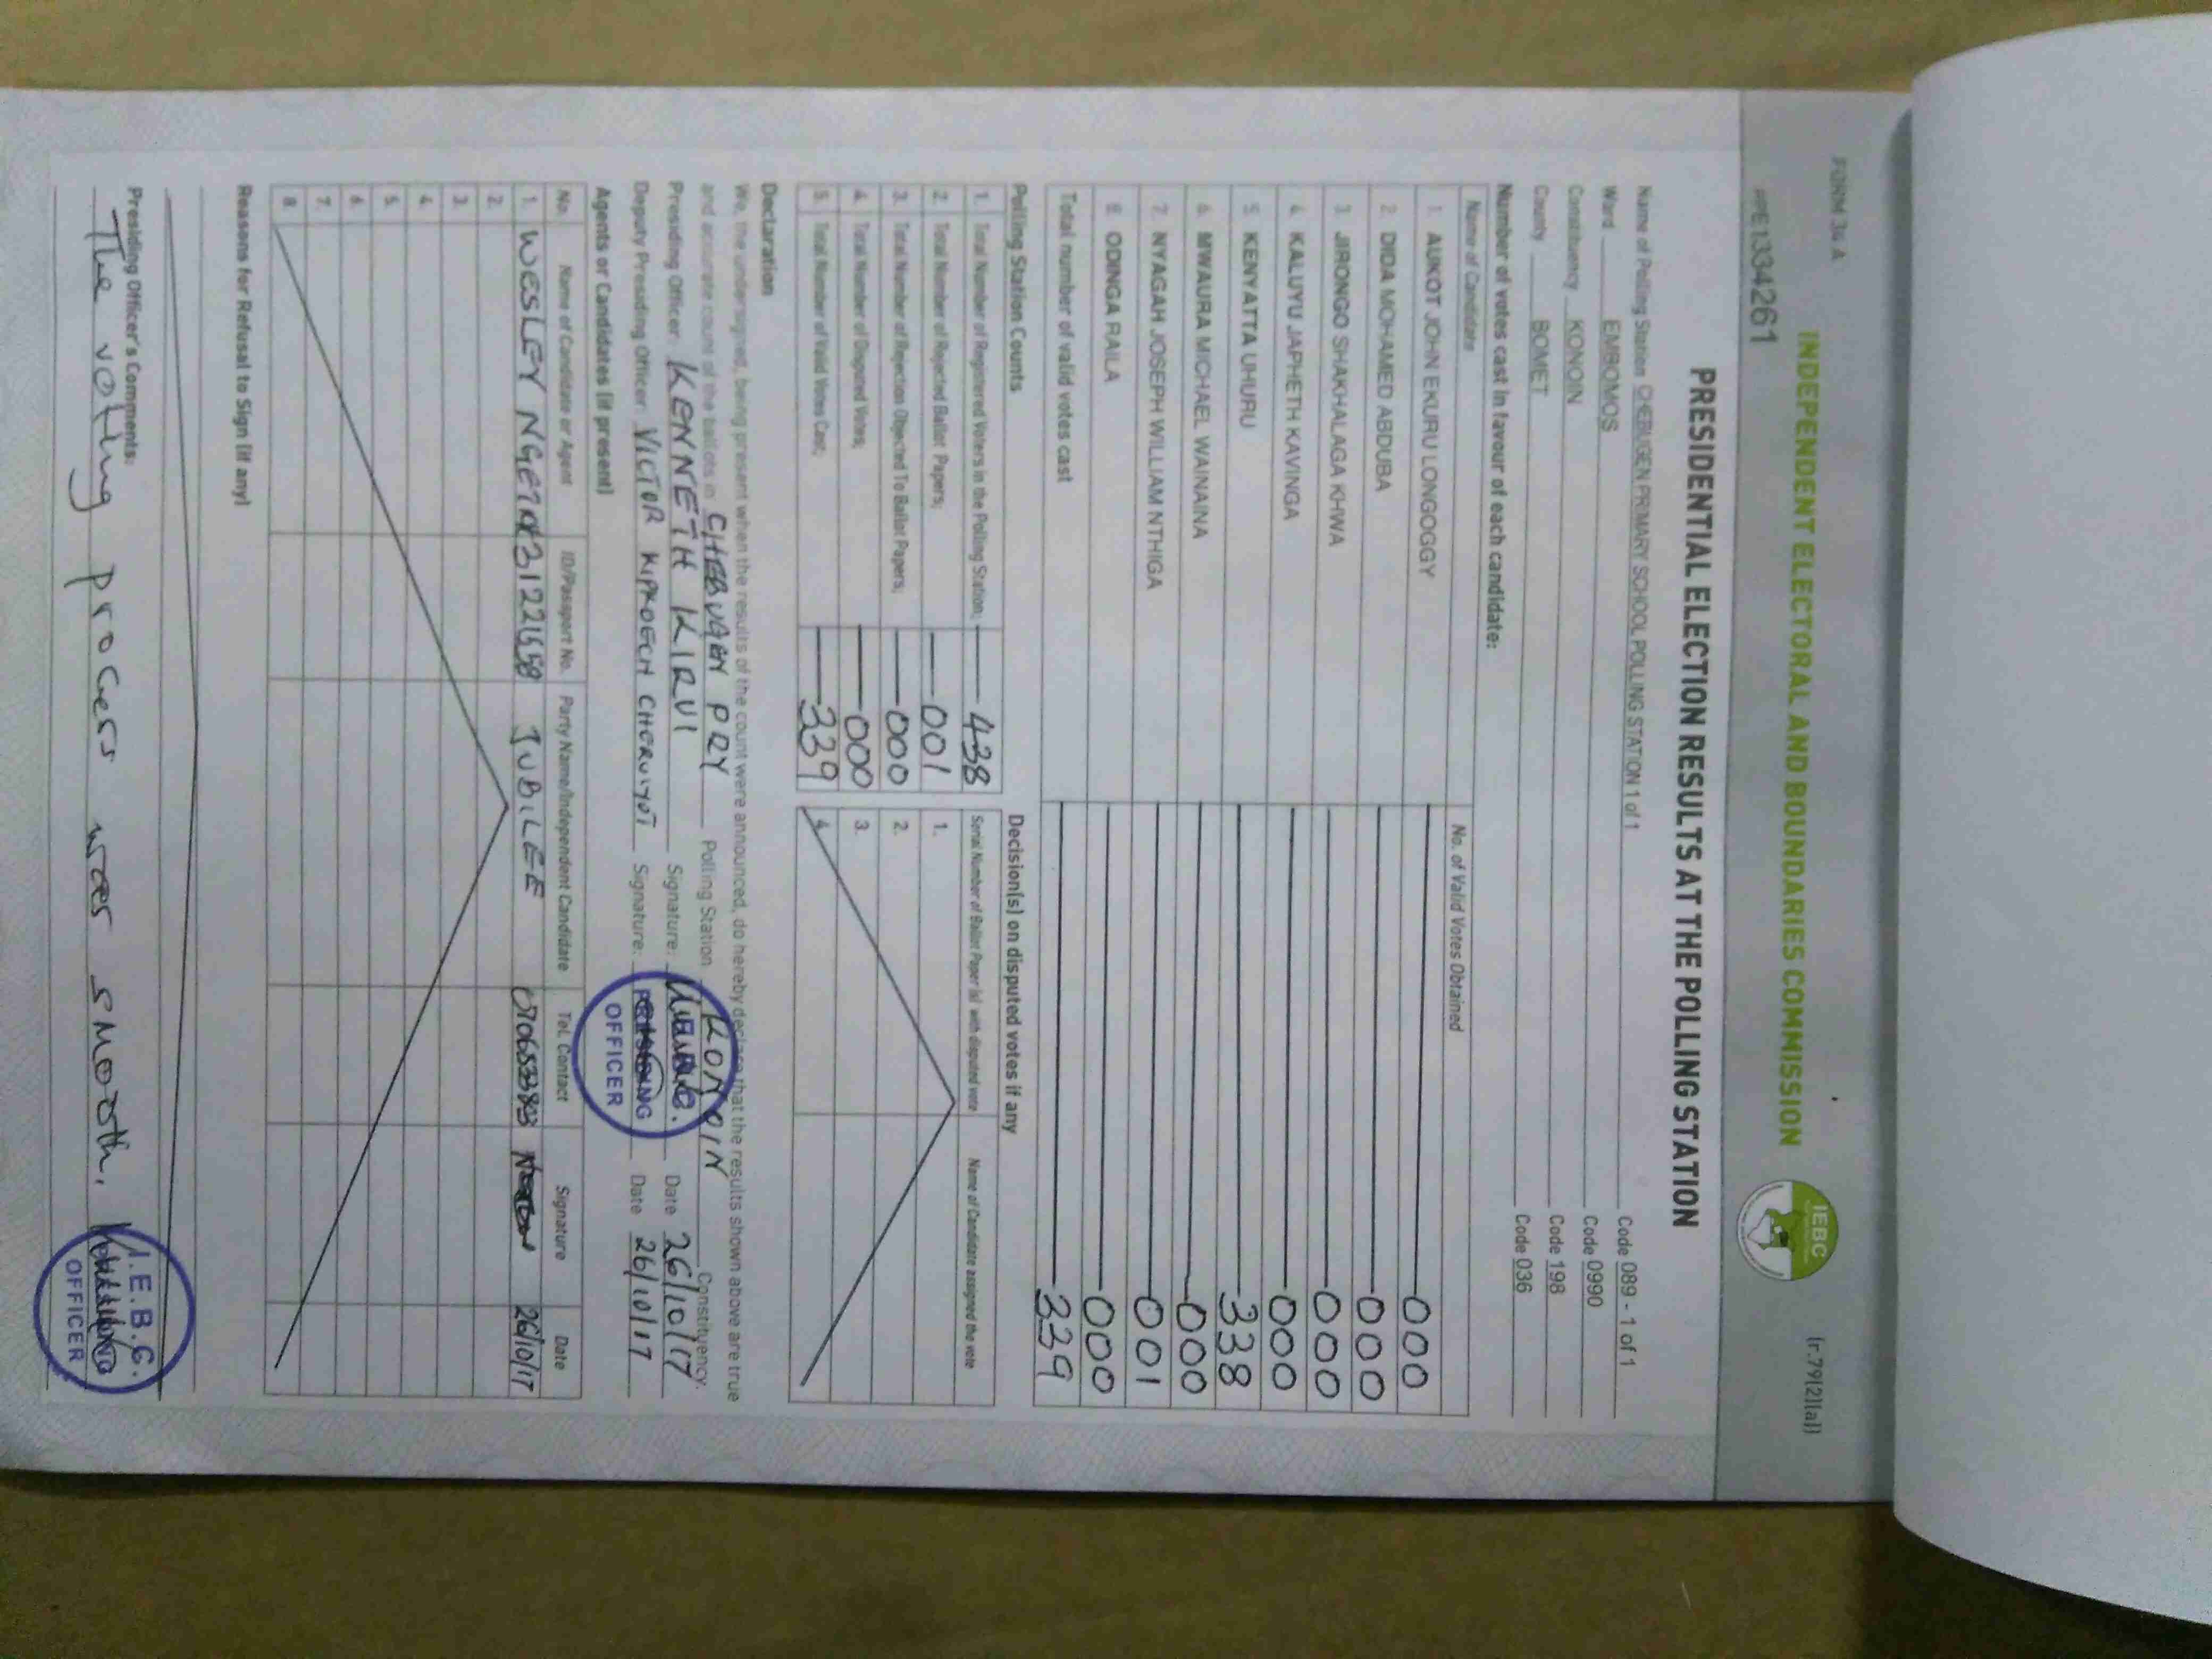 FORM 34 A
(r.79(2)(a))
INDEPENDENT ELECTORAL AND BOUNDARIES COMMISSION
IEBC
PRE1334261
PRESIDENTIAL ELECTION RESULTS AT THE POLLING STATION
Name of Polling Station CHEBUGEN PRIMARY SCHOOL POLLING STATION 1 of 1 Code 089 - 1 of 1
Ward EMBOMOS Code 0990
Constituency KONOIN Code 198
County BOMET Code 036
Number of votes cast in favour of each candidate:
Name of Candidate No. of Valid Votes Obtained
1. AUKOT JOHN EKURU LONGOGGY 000
2. DIDA MOHAMED ABDUBA 000
3. JIRONGO SHAKHALAGA KHWA 000
4. KALUYU JAPHETH KAVINGA 000
5. KENYATTA UHURU 338
6. MWAURA MICHAEL WAINAINA 000
7. NYAGAH JOSEPH WILLIAM NTHIGA 001
8. ODINGA RAILA 000
Total number of valid votes cast 339
Polling Station Counts Decision(s) on disputed votes if any
1. Total Number of Registered Voters in the Polling Station; 438 Serial Number of Ballot Paper (s) with disputed vote Name of Candidate assigned the vote
2. Total Number of Rejected Ballot Papers; 001 1.
3. Total Number of Rejection Objected To Ballot Papers; 000 2.
4. Total Number of Disputed Votes; 000 3.
5. Total Number of Valid Votes Cast; 339 4.
Declaration
We, the undersigned, being present when the results of the count were announced, do hereby declare that the results shown above are true
and accurate count of the ballots in CHEBUGEN PRY Polling Station KONOIN Constituency.
Presiding Officer: KENNETH KIRUI Signature: Date 26/10/17
Deputy Presiding Officer: VICTOR KIPKOECH CHERUIYOT Signature: Date 26/10/17
PRESIDING
OFFICER
Agents or Candidates (if present)
No. Name of Candidate or Agent ID/Passport No. Party Name/Independent Candidate Tel. Contact Signature Date
1. WESLEY JUBILEE 26/10/17
2.
3.
4.
5.
6.
7.
8.
Reasons for Refusal to Sign (if any)
Presiding Officer's Comments:
The voting process was smooth.
I.E.B.C.
OFFICER